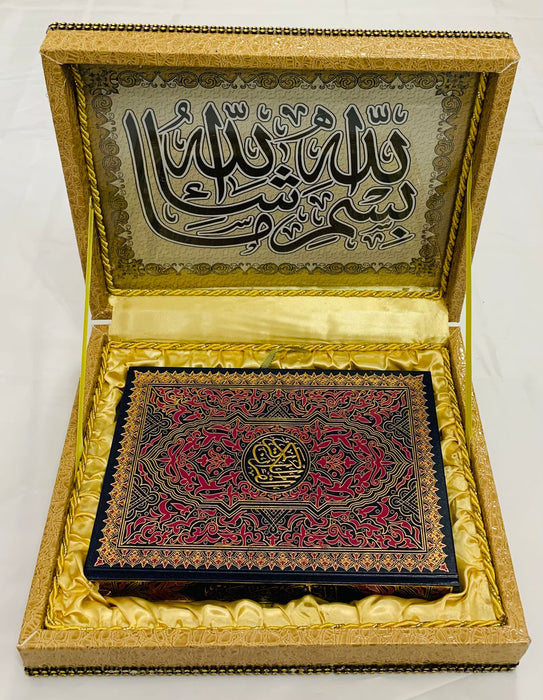 بِسْمِ اللّٰهِ
مَا شَاءُ اللّٰهُ
القرآن الكريم